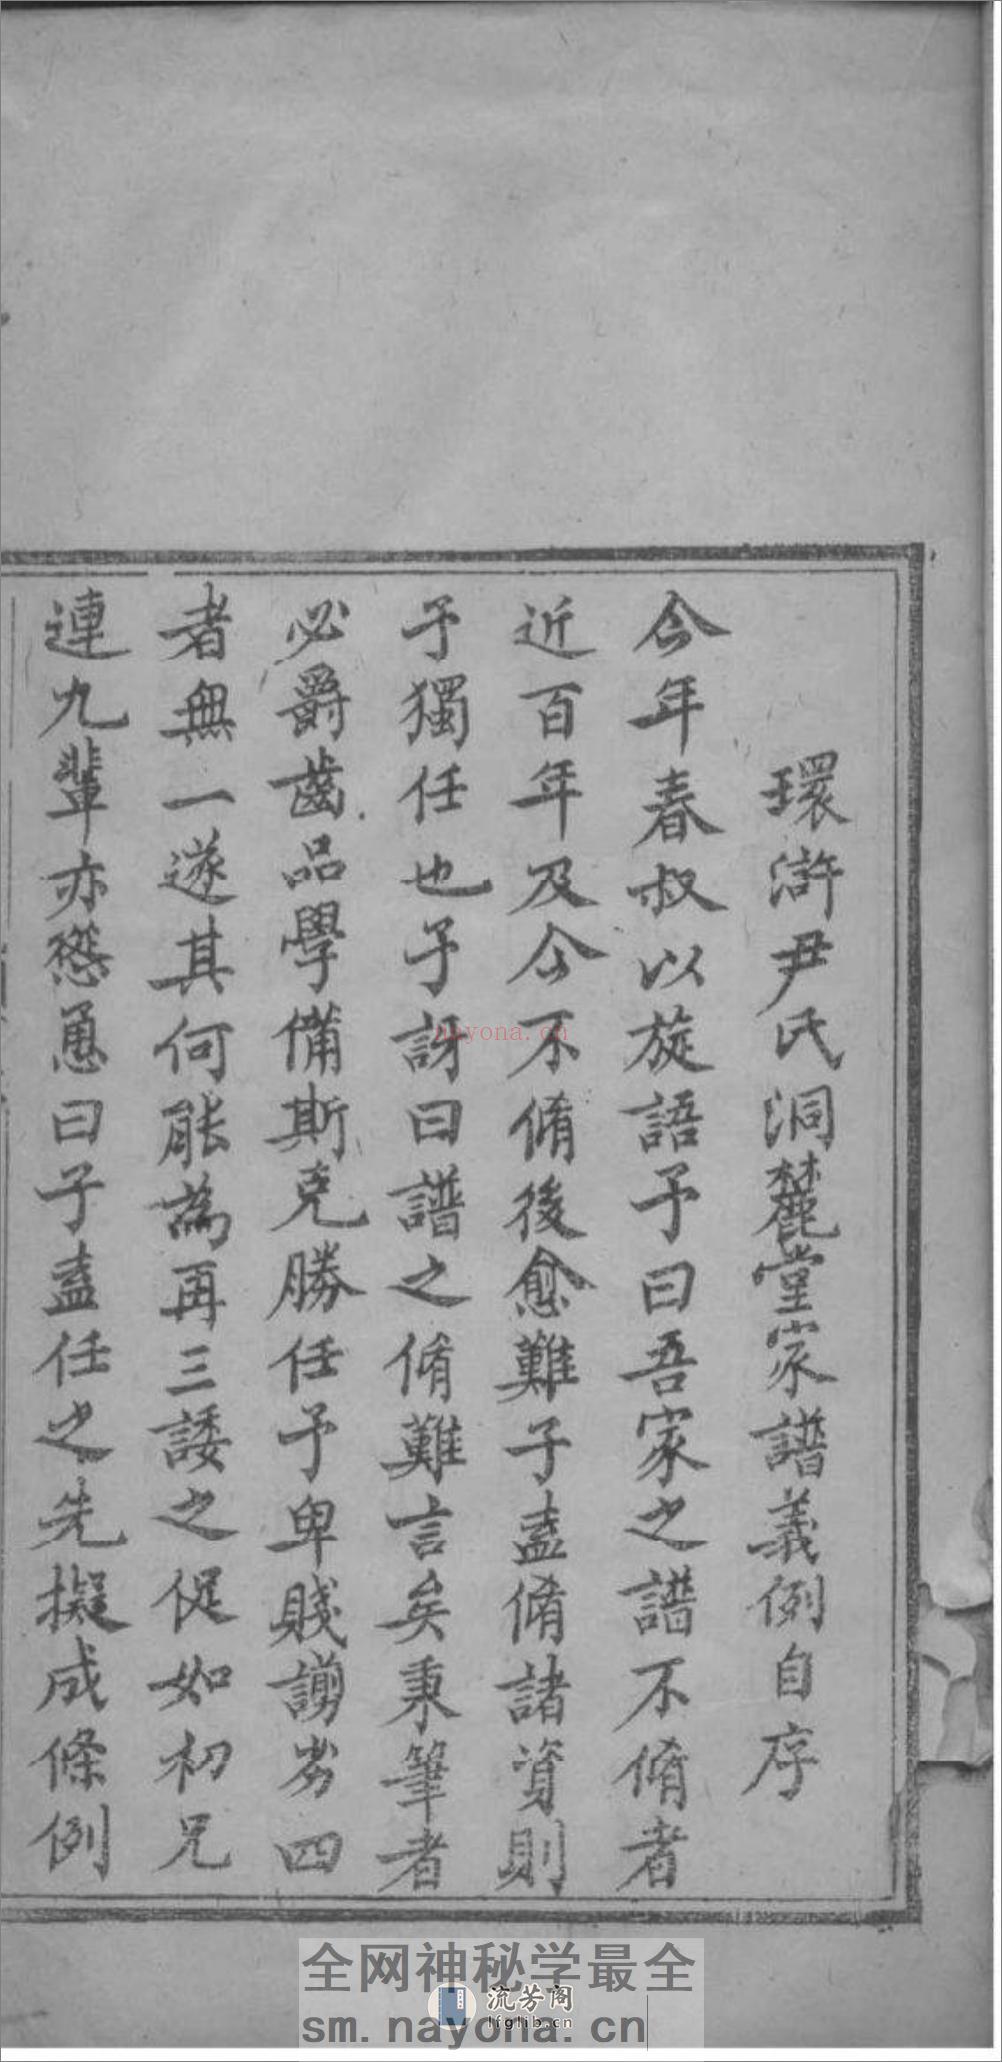 環滸尹氏洞麓堂家譜義例自序
今年春叔以旋語予曰吾家之譜不脩者
近百年及今不脩後愈難子盍脩諸資則
予獨任也予訝曰譜之脩難言矣秉筆者
必爵齒品學備斯克勝任予卑賤謭劣四
者無一遂其何能為再三諉之促如初兄
連九輩亦慫恿曰子盍任之先擬成條例
nayona.cn
全网神秘学最全
流芳阁
lfglib.cn
sm.nayona.cn